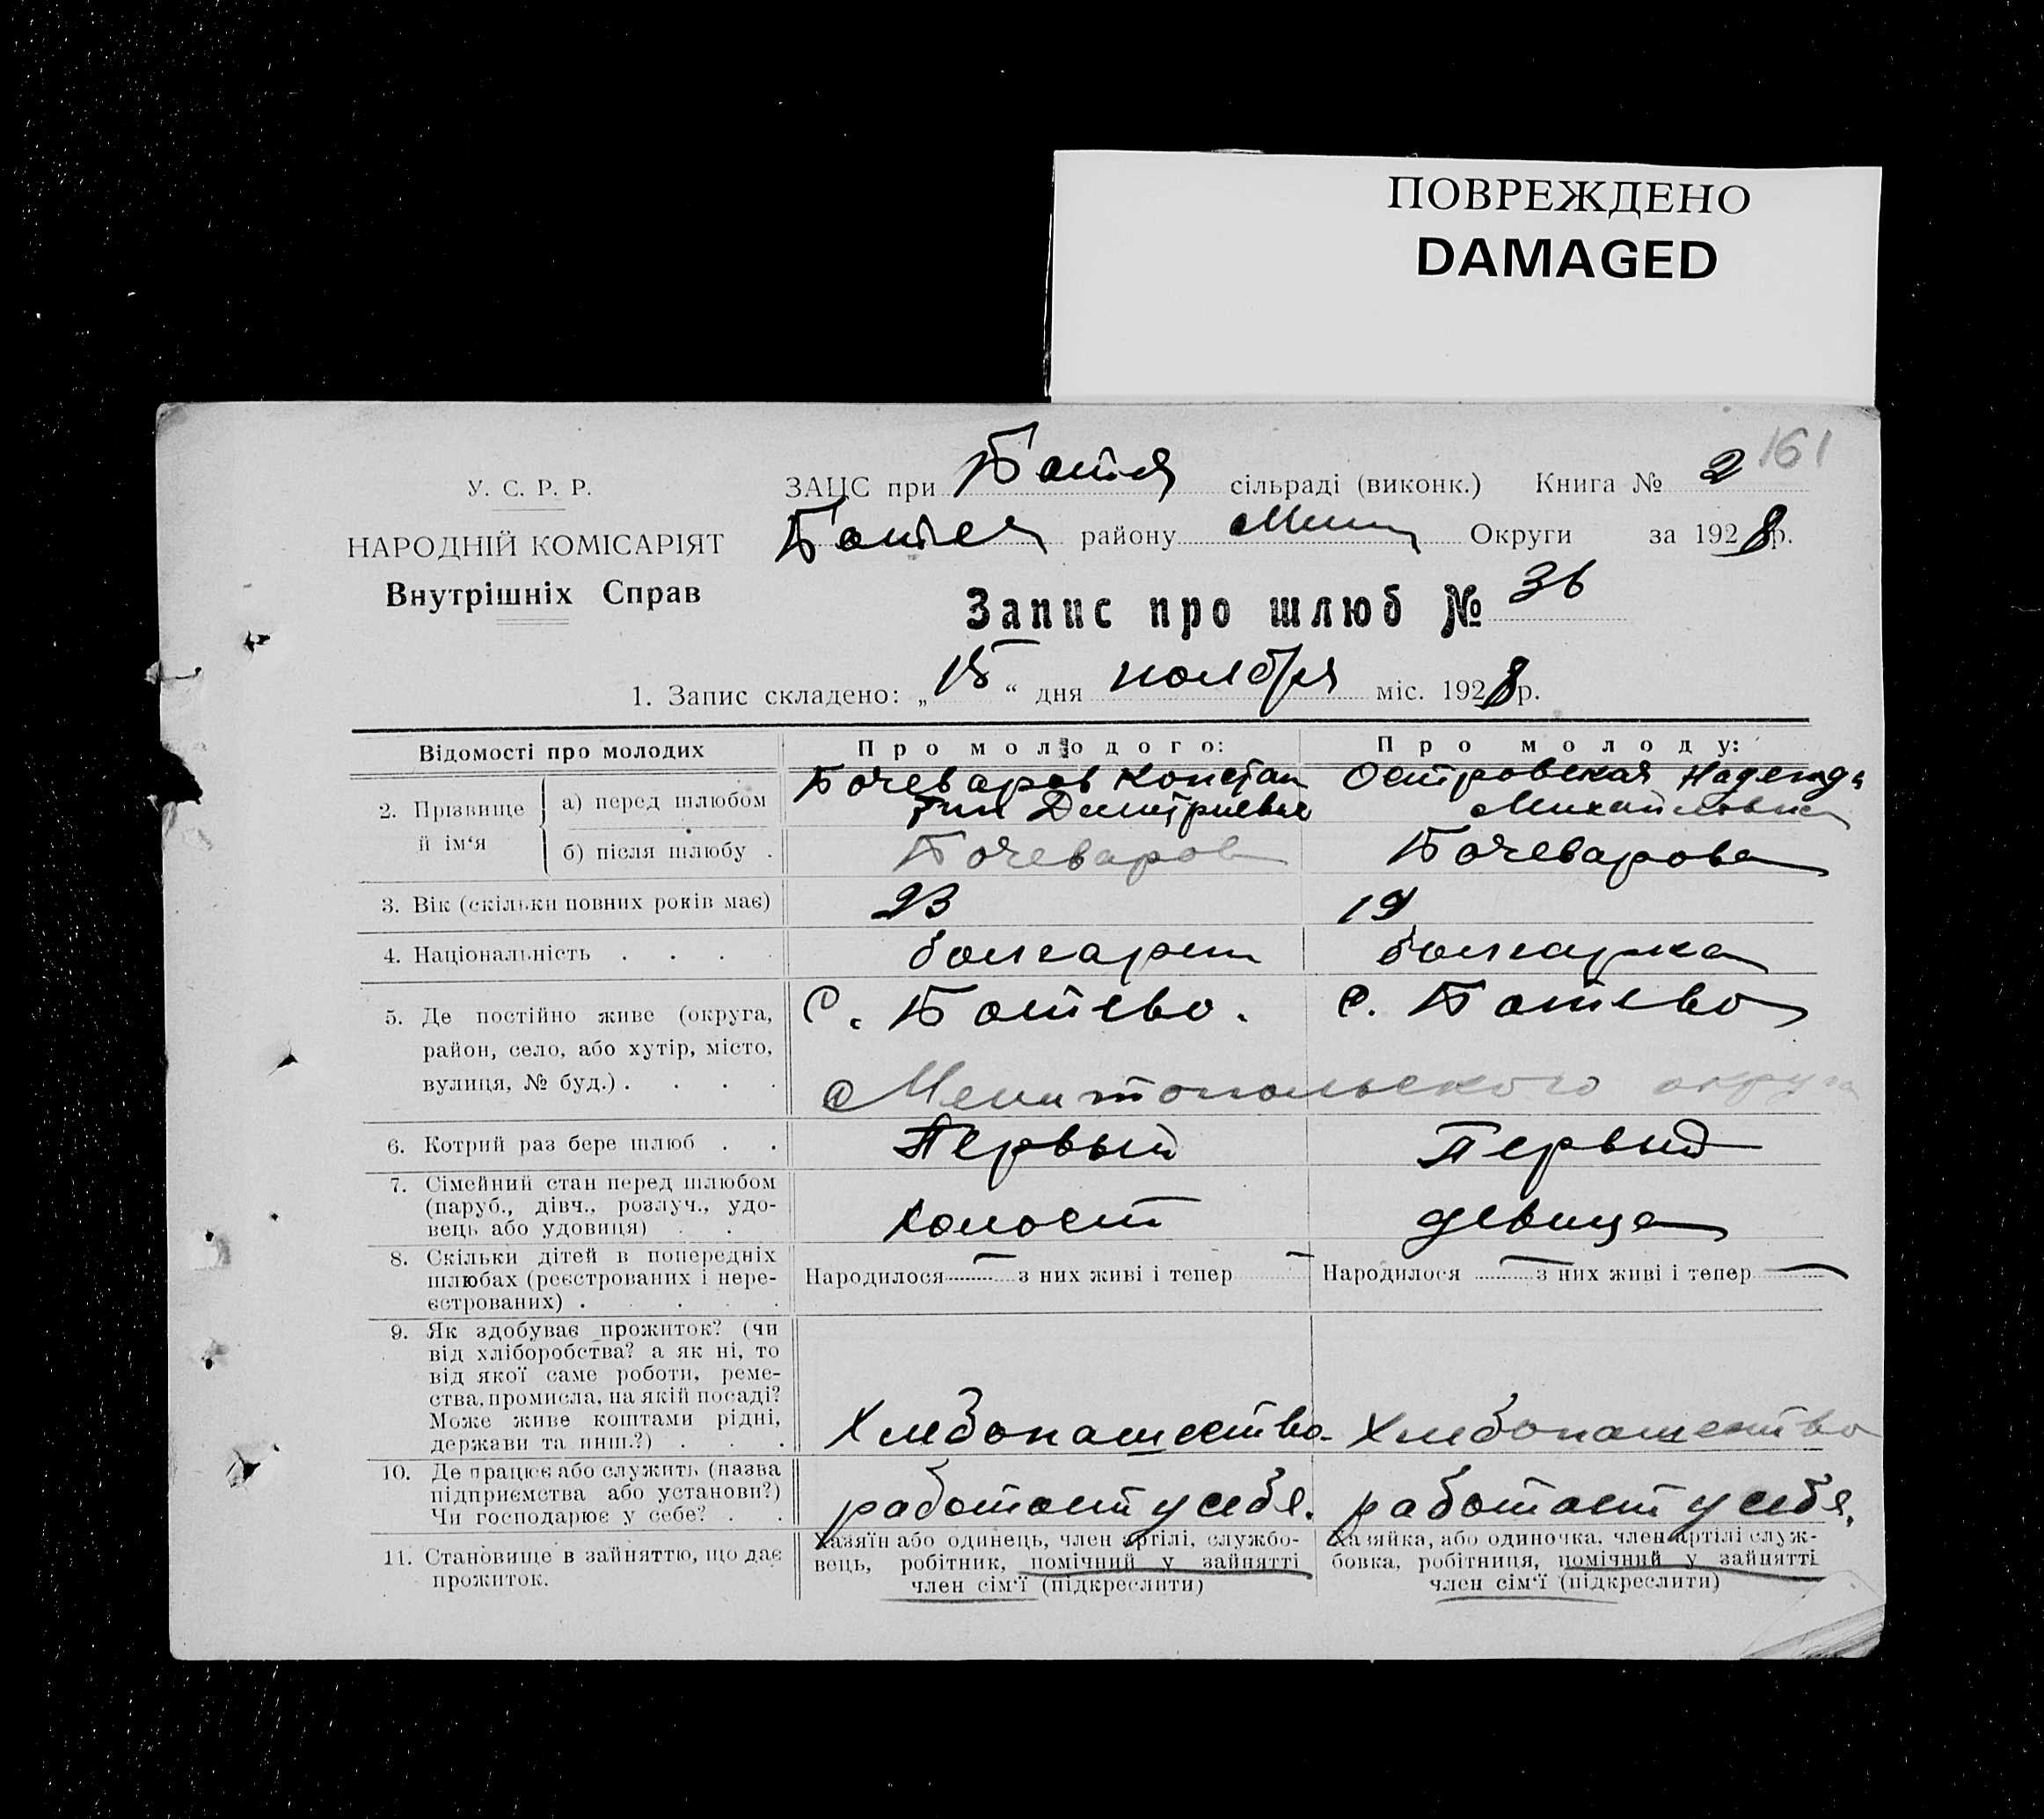 ПОВРЕЖДЕНО
DAMAGED
161
У. С. Р. Р.
НАРОДНІЙ КОМІСАРІЯТ
Внутрішніх Справ
ЗАЦС при сільраді (виконк.) Книга № 2
району Округи за 1928 р.
Запис про шлюб № 36
1. Запис складено: „15“ дня ноября міс. 1928 р.
Відомості про молодих
Про молодого:
Про молоду:
2. Прізвище й ім‘я
а) перед шлюбом
Бочеваров Констан
тин Димитриевич
Островская Надежда
Михайловна
б) після шлюбу .
Бочеваров
Бочеварова
3. Вік (скільки повних років має)
23
19
4. Національність . . . .
болгарин
болгарка
5. Де постійно живе (округа,
район, село, або хутір, місто,
вулиця, № буд.) . . . .
С. Ботево.
с. Ботево
Мелитопольского округа
6. Котрий раз бере шлюб . .
Первый
Первый
7. Сімейний стан перед шлюбом
(паруб., дівч., розлуч., удо-
вець або удовиця) . .
холост
девица
8. Скільки дітей в попередніх
шлюбах (реєстрованих і нере-
єстрованих) . . . . .
Народилося — з них живі і тепер —
Народилося — з них живі і тепер —
9. Як здобуває прожиток? (чи
від хліборобства? а як ні, то
від якої саме роботи, реме-
ства, промисла, на якій посаді?
Може живе коштами рідні,
держави та инш.?) . . .
Хлебопашество
Хлебопашество
10. Де працює або служить (назва
підприємства або установи?)
Чи господарює у себе? . .
работает у себя.
работает у себя.
11. Становище в зайняттю, що дає
прожиток.
Хазяїн або одинець, член артілі, службо-
вець, робітник, помічний у зайнятті
член сім‘ї (підкреслити)
Хазяйка, або одиночка, член артілі служ-
бовка, робітниця, помічний у зайнятті
член сім‘ї (підкреслити)